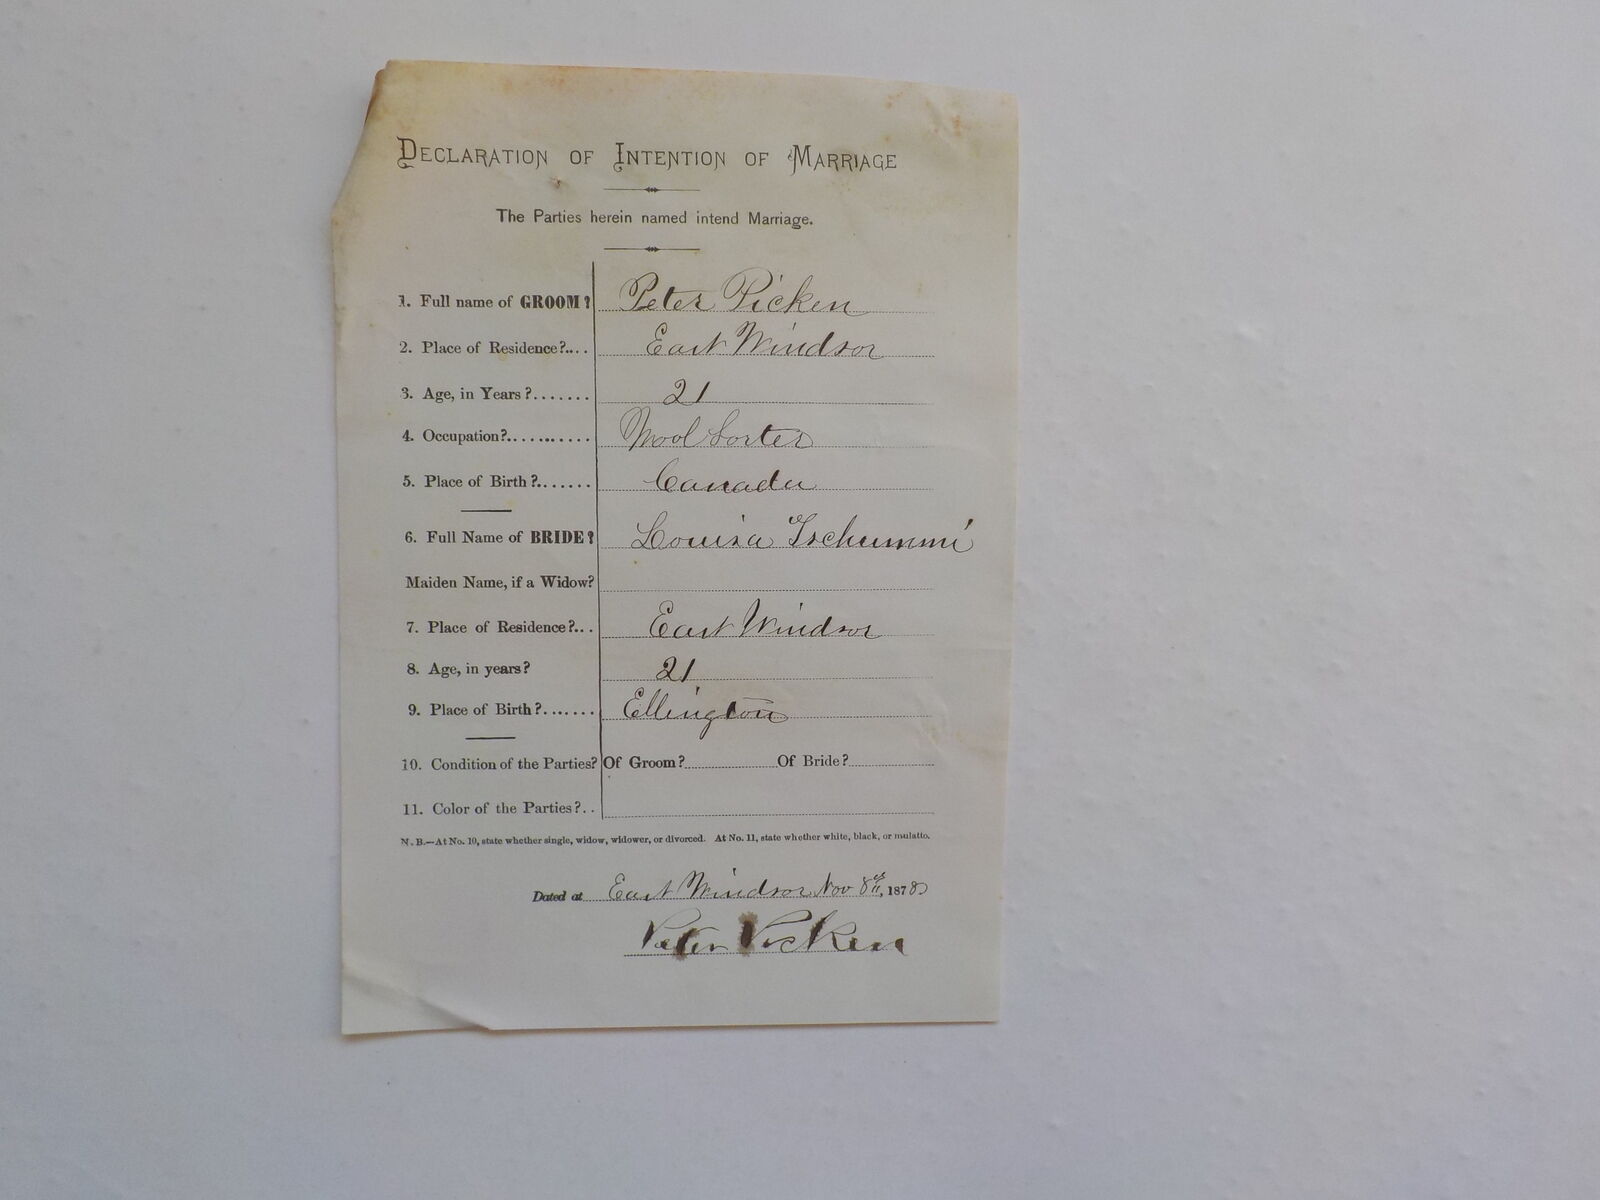 DECLARATION OF INTENTION OF MARRIAGE
The Parties herein named intend Marriage.
1. Full name of GROOM? Peter Picken
2. Place of Residence?.... East Windsor
3. Age, in Years?....... 21
4. Occupation?........... Wool Sorter
5. Place of Birth?....... Canada
6. Full Name of BRIDE? Louisa Tschummi
Maiden Name, if a Widow?
7. Place of Residence?... East Windsor
8. Age, in years? 21
9. Place of Birth?....... Ellington
10. Condition of the Parties? Of Groom? Of Bride?
11. Color of the Parties?..
N. B.—At No. 10, state whether single, widow, widower, or divorced. At No. 11, state whether white, black, or mulatto.
Dated at East Windsor Nov 8th, 1878
Peter Picken